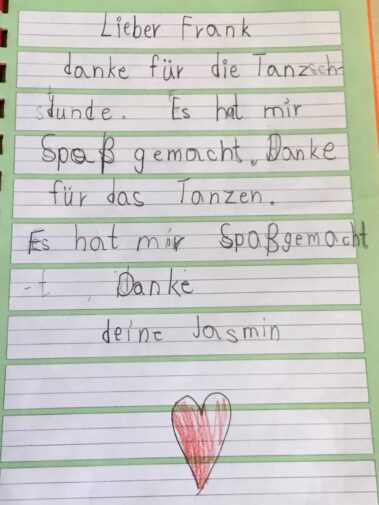 Lieber Frank
danke für die Tanzsch-
stunde. Es hat mir
Spaß gemacht. Danke
für das Tanzen.
Es hat mir Spaßgemacht
-t, Danke
deine Jasmin